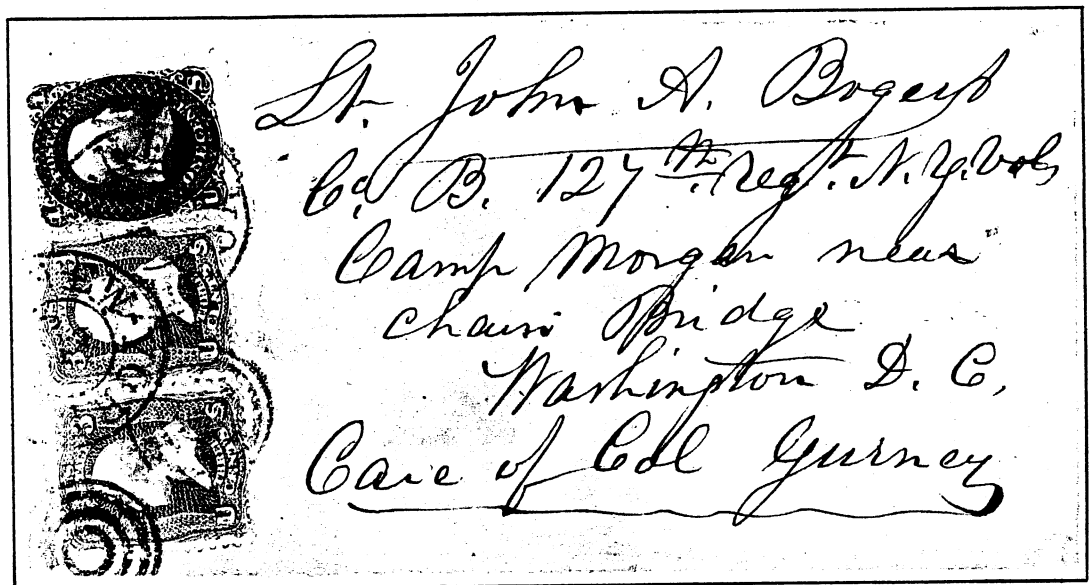 Lt. John A. Bogert
Co. B. 127th Regt. N.Y. Vols
Camp Morgan near
Chain Bridge
Washington D. C,
Care of Col Gurney